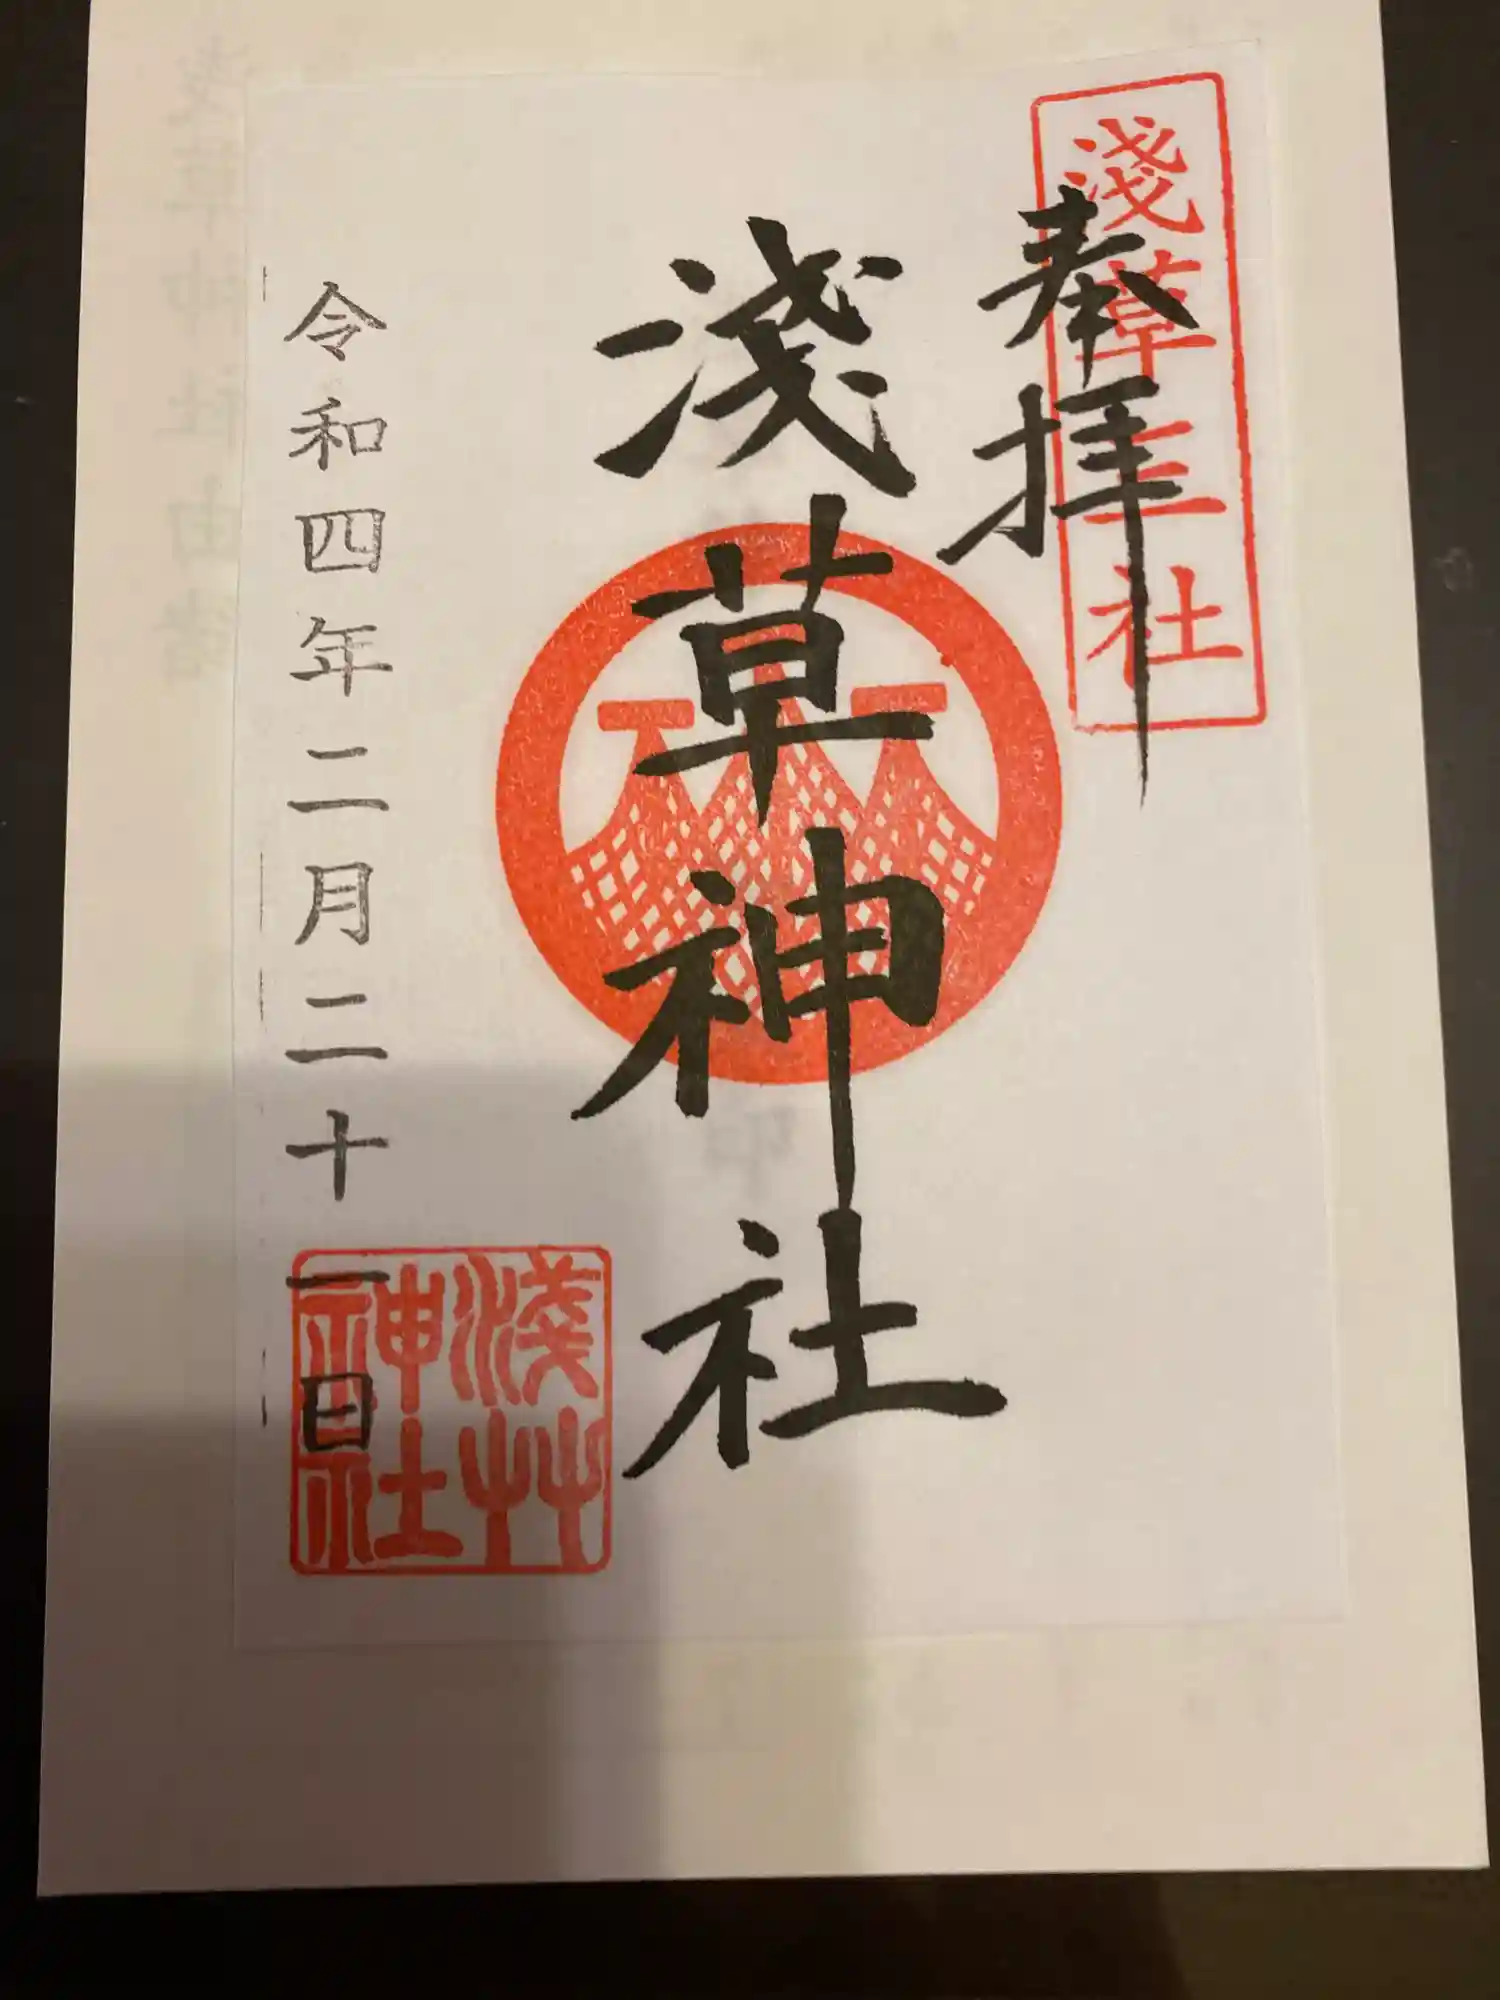 淺草三社
奉拝
淺草神社
令和四年二月二十一日
淺艸
神社